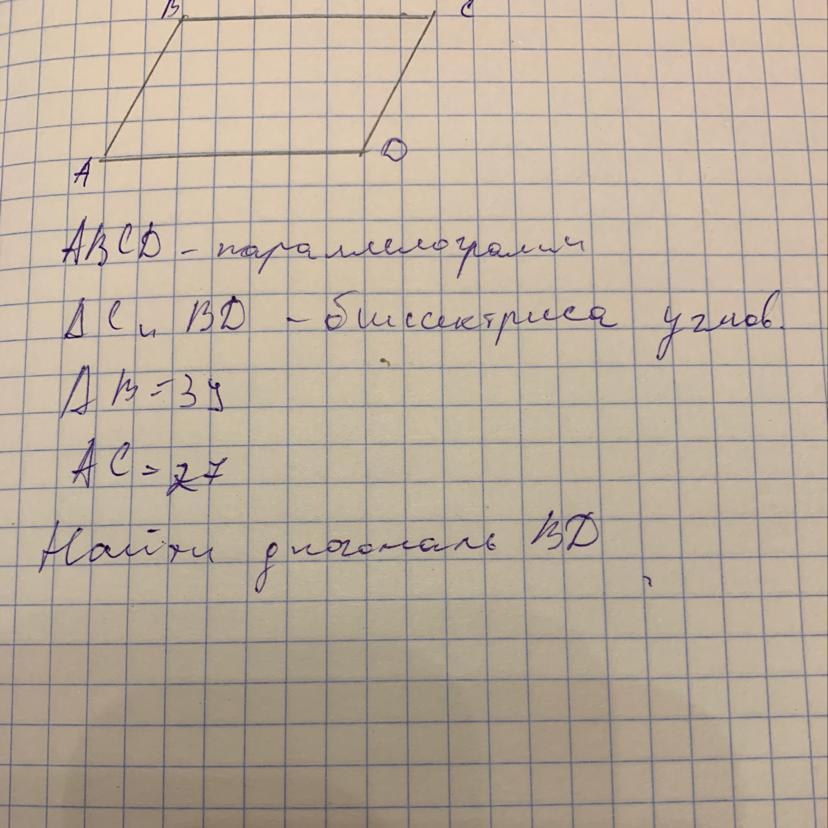 B C
A D
ABCD - параллелограмм
AC и BD - биссектриса углов.
AB = 39
AC = 27
Найти диагональ BD